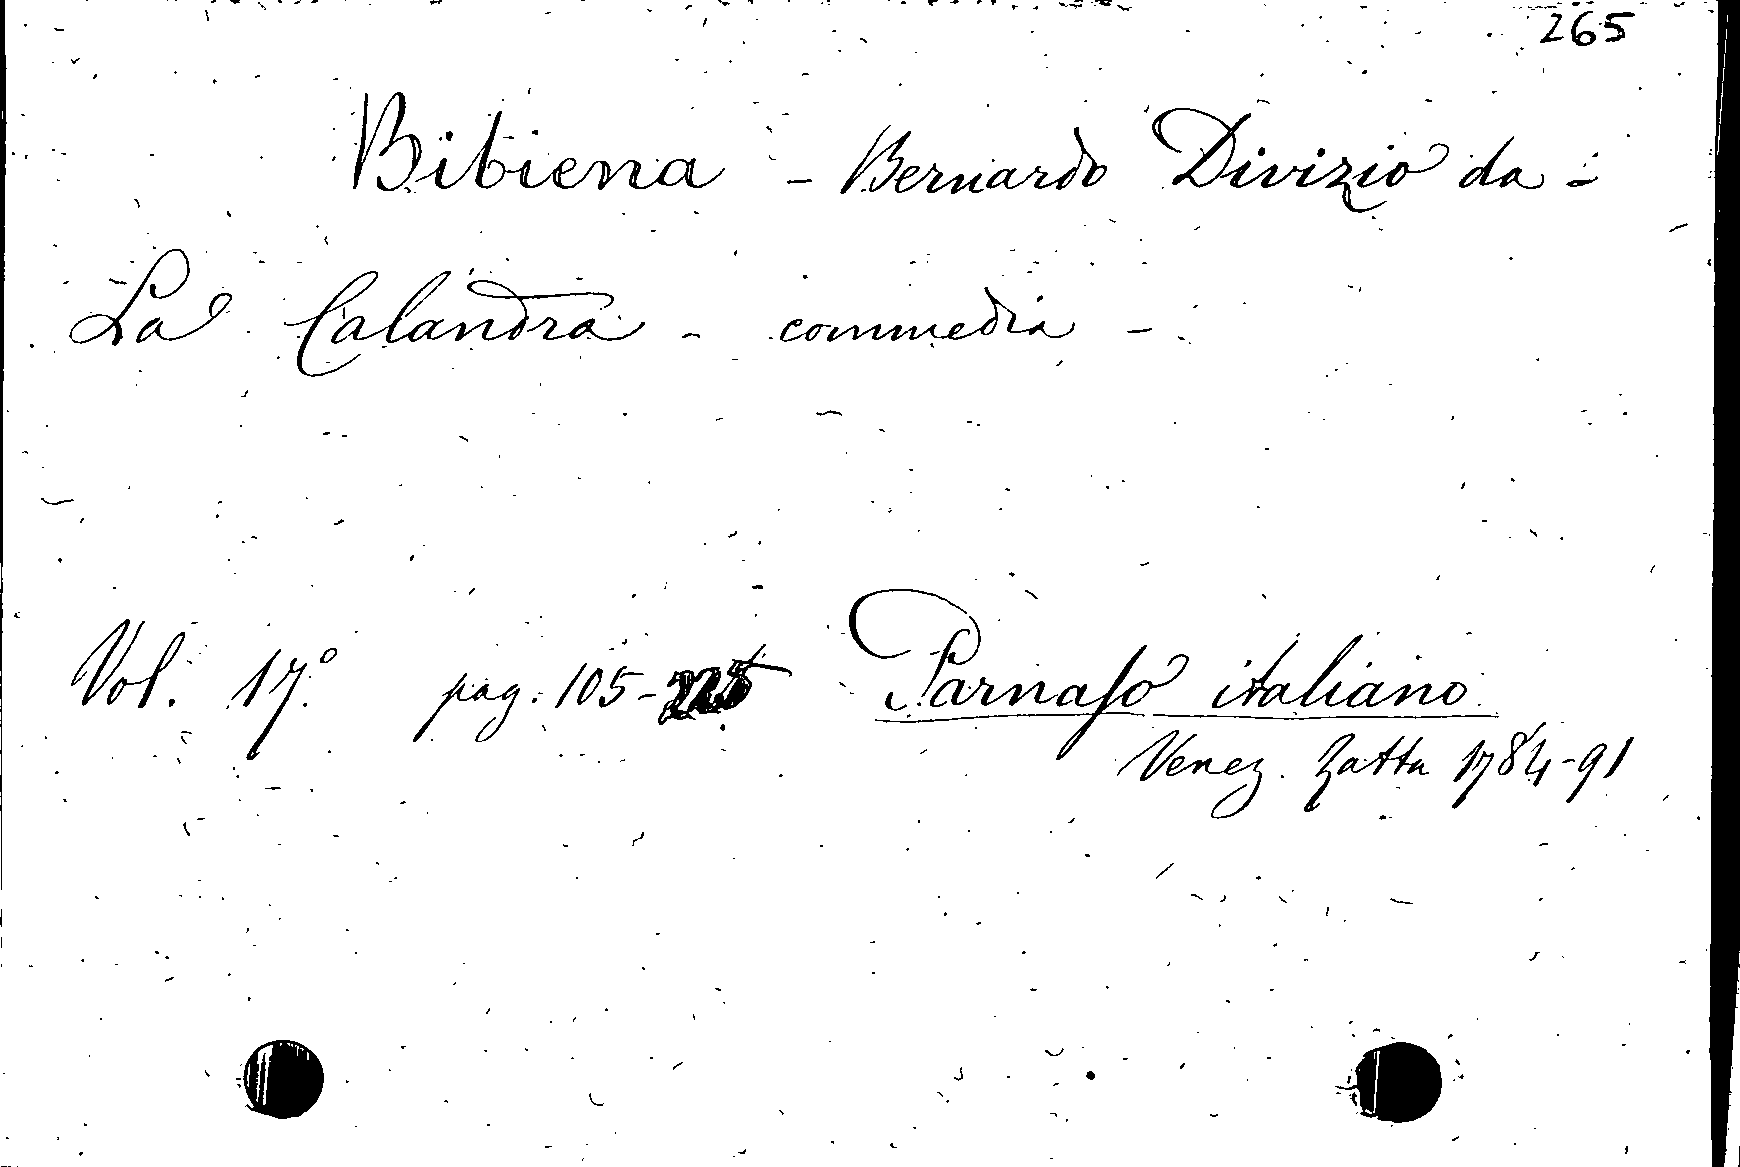 265
Bibiena - Bernardo Divizio da -
La Calandra - commedia -
Vol. 17.º pag. 105-225 Parnaso italiano
Venez. Zatta 1784-91